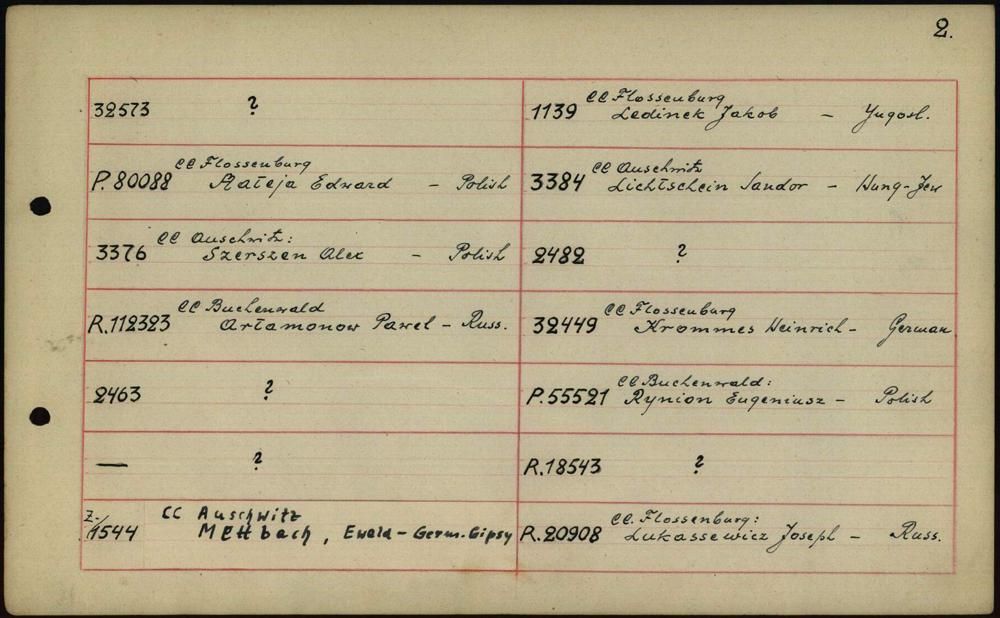 2.
32573 ?
CC Flossenburg
P. 80088 Mateja Edward - Polish
CC Auschwitz:
3376 Szerszen Alex - Polish
CC Buchenwald
R. 112323 Artamonow Pawel - Russ.
2463 ?
— ?
CC Auschwitz
Z-/1544 Mettbach, Ewald - Germ. Gipsy
CC Flossenburg
1139 Ledinek Jakob - Yugosl.
CC Auschwitz
3384 Lichtschein Sandor - Hung-Jew
2482 ?
CC Flossenburg
32449 Krommes Heinrich - German
CC Buchenwald:
P. 55521 Rynion Eugeniusz - Polish
R. 18543 ?
CC. Flossenburg:
R. 20908 Lukassewicz Joseph - Russ.